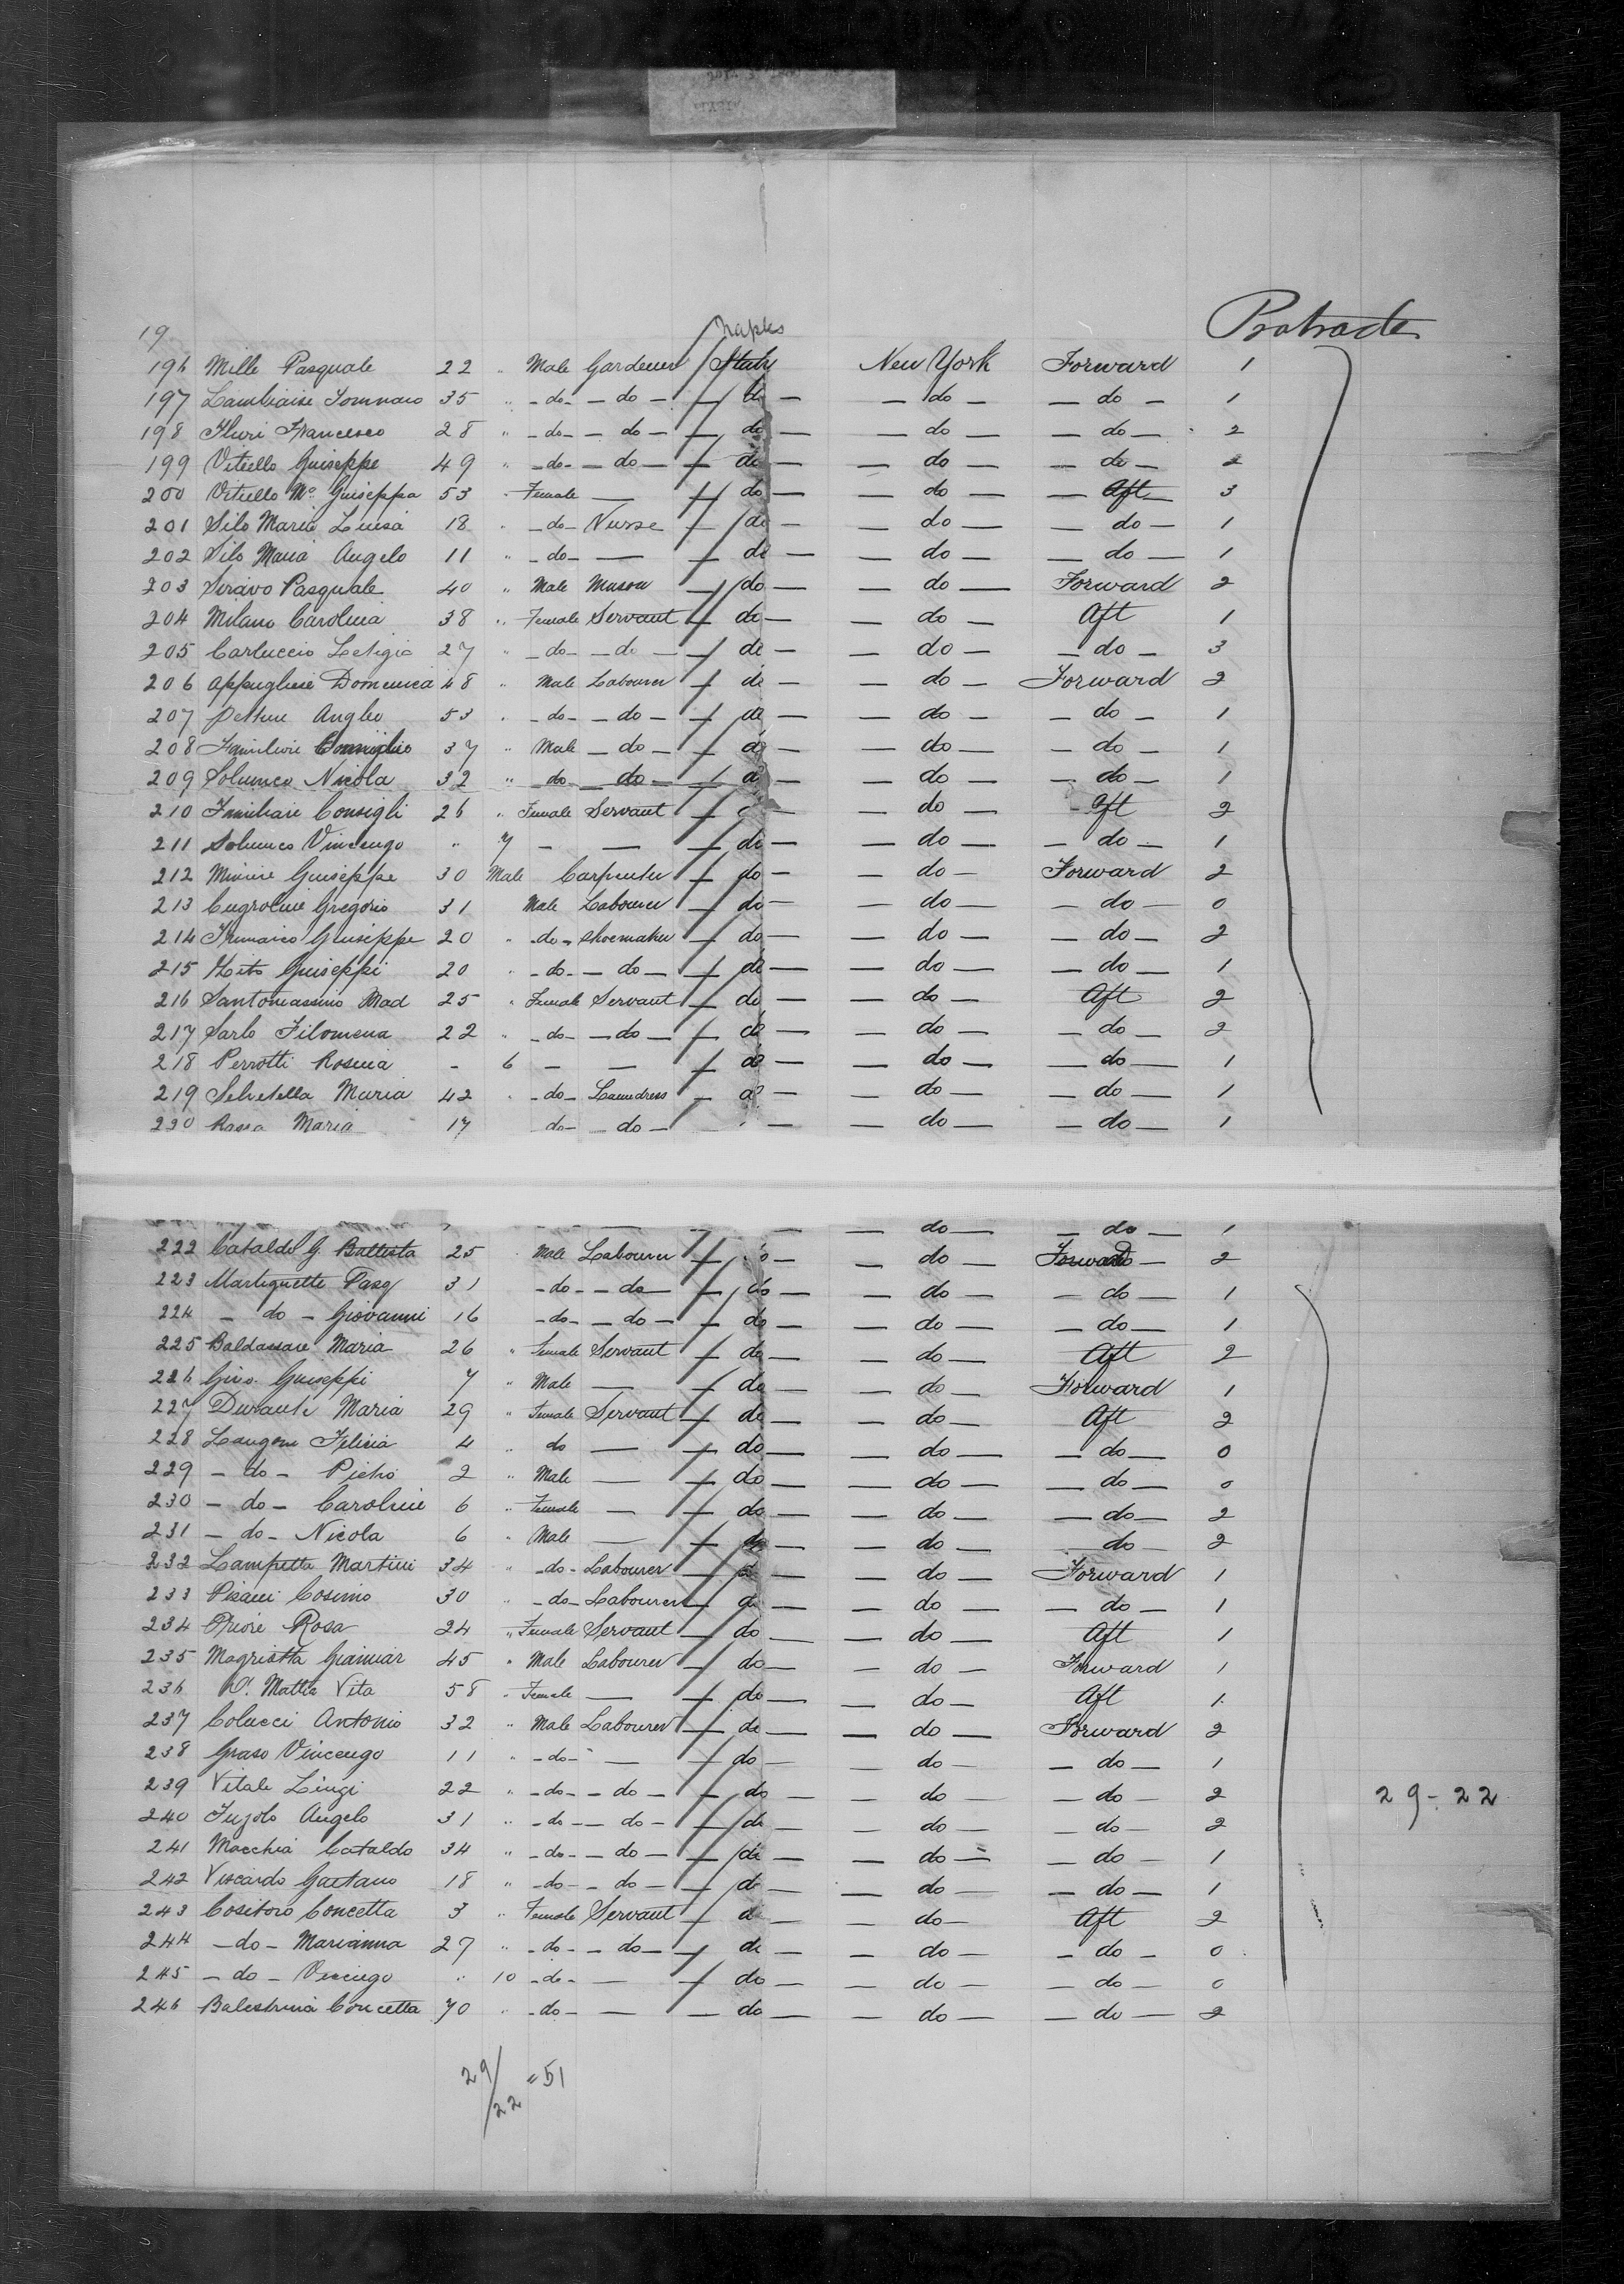 Protracte
19
Naples
196 Mille Pasquale 22 " Male Gardener Italy New York Forward 1
197 Lambiaise Tommaso 35 " -do- -do- do - -do- -do- 1
198 Fluri Francesco 28 " -do- -do- do - -do- -do- 2
199 Vitiello Guiseppe 49 " -do- -do- do - -do- -do- 2
200 Vitiello Ma Guiseppa 53 " Female - do - -do- - Aft - 3
201 Silo Maria Luisa 18 " -do- Nurse do - -do- -do- 1
202 Silo Maria Angelo 11 " -do- - do - -do- -do- 1
203 Seravo Pasquale 40 " Male Mason do - -do- Forward 2
204 Milano Carolina 38 " Female Servant do - -do- Aft 1
205 Carluccio Letizia 27 " -do- -do- do - -do- -do- 3
206 Appugliese Domenica 48 " Male Labourer do - -do- Forward 2
207 Angleo 53 " -do- -do- do - -do- -do- 1
208 37 " Male -do- do - -do- -do- 1
209 Solumco Nicola 32 " do do do - -do- -do- 1
210 Familiari Consigli 26 " Female Servant - -do- - Aft 2
211 Solumco Vincenzo " 7 - - do - -do- -do- 1
212 Guiseppe 30 Male Carpenter do - -do- Forward 2
213 Gregorio 31 Male Labourer do - -do- -do- 0
214 Guiseppe 20 " -do- Shoemaker do - -do- -do- 2
215 Guiseppi 20 " -do- -do- do - -do- -do- 1
216 Santomassino Mad 25 " Female Servant do - -do- Aft 2
217 Sarlo Filomena 22 " -do- -do- do - -do- -do- 2
218 Perrotti Rosina - 6 - - do - -do- -do- 1
219 Selvetella Maria 42 " -do- Laundress - -do- -do- 1
220 Rassa Maria 17 -do- -do- - -do- -do- 1
- do - - do - 1
222 Cataldo G. Battista 25 Male Labourer do - -do- Forward 2
223 Martignetti Pasq 31 -do- -do- do - -do- -do- 1
224 - do - Giovanni 16 -do- -do- do - -do- -do- 1
225 Baldassare Maria 26 " Female Servant do - -do- Aft 2
226 Giro Guiseppi 7 " Male - do - -do- Forward 1
227 Durante Maria 29 " Female Servant do - -do- Aft 2
228 Langone Felicia 4 " do - do - -do- -do- 0
229 - do - Pietro 2 " Male - do - -do- -do- 0
230 - do - Caroline 6 " Female - do - -do- -do- 2
231 - do - Nicola 6 " Male - do - -do- -do- 2
232 Lampetta Martini 34 " -do- Labourer - -do- Forward 1
233 Pisani Cosimo 30 " -do- Labourer do - -do- -do- 1
234 Priore Rosa 24 " Female Servant do - -do- Aft 1
235 Magriotta 45 " Male Labourer do - -do- Forward 1
236 D. Mattia Vita 58 " Female - do - -do- Aft 1
237 Colucci Antonio 32 " Male Labourer do - -do- Forward 2
238 Graso Vincenzo 11 " -do- - do - do - -do- 1
239 Vitale Linzi 22 " -do- -do- do - do - -do- 2
29-22
240 Fuzolo Angelo 31 " -do- -do- do - -do- -do- 2
241 Macchia Cataldo 34 " -do- -do- do - -do- -do- 1
242 Viscardo Gaetano 18 " -do- -do- do - -do- -do- 1
243 Cositoro Concetta 3 " Female Servant do - -do- Aft 2
244 -do- Marianna 27 " -do- -do- do - -do- -do- 0
245 -do- Vincenzo " 10 -do- - do - -do- -do- 0
246 Balestrina Concetta 70 " -do- - - do - -do- -do- 2
29/22 = 51